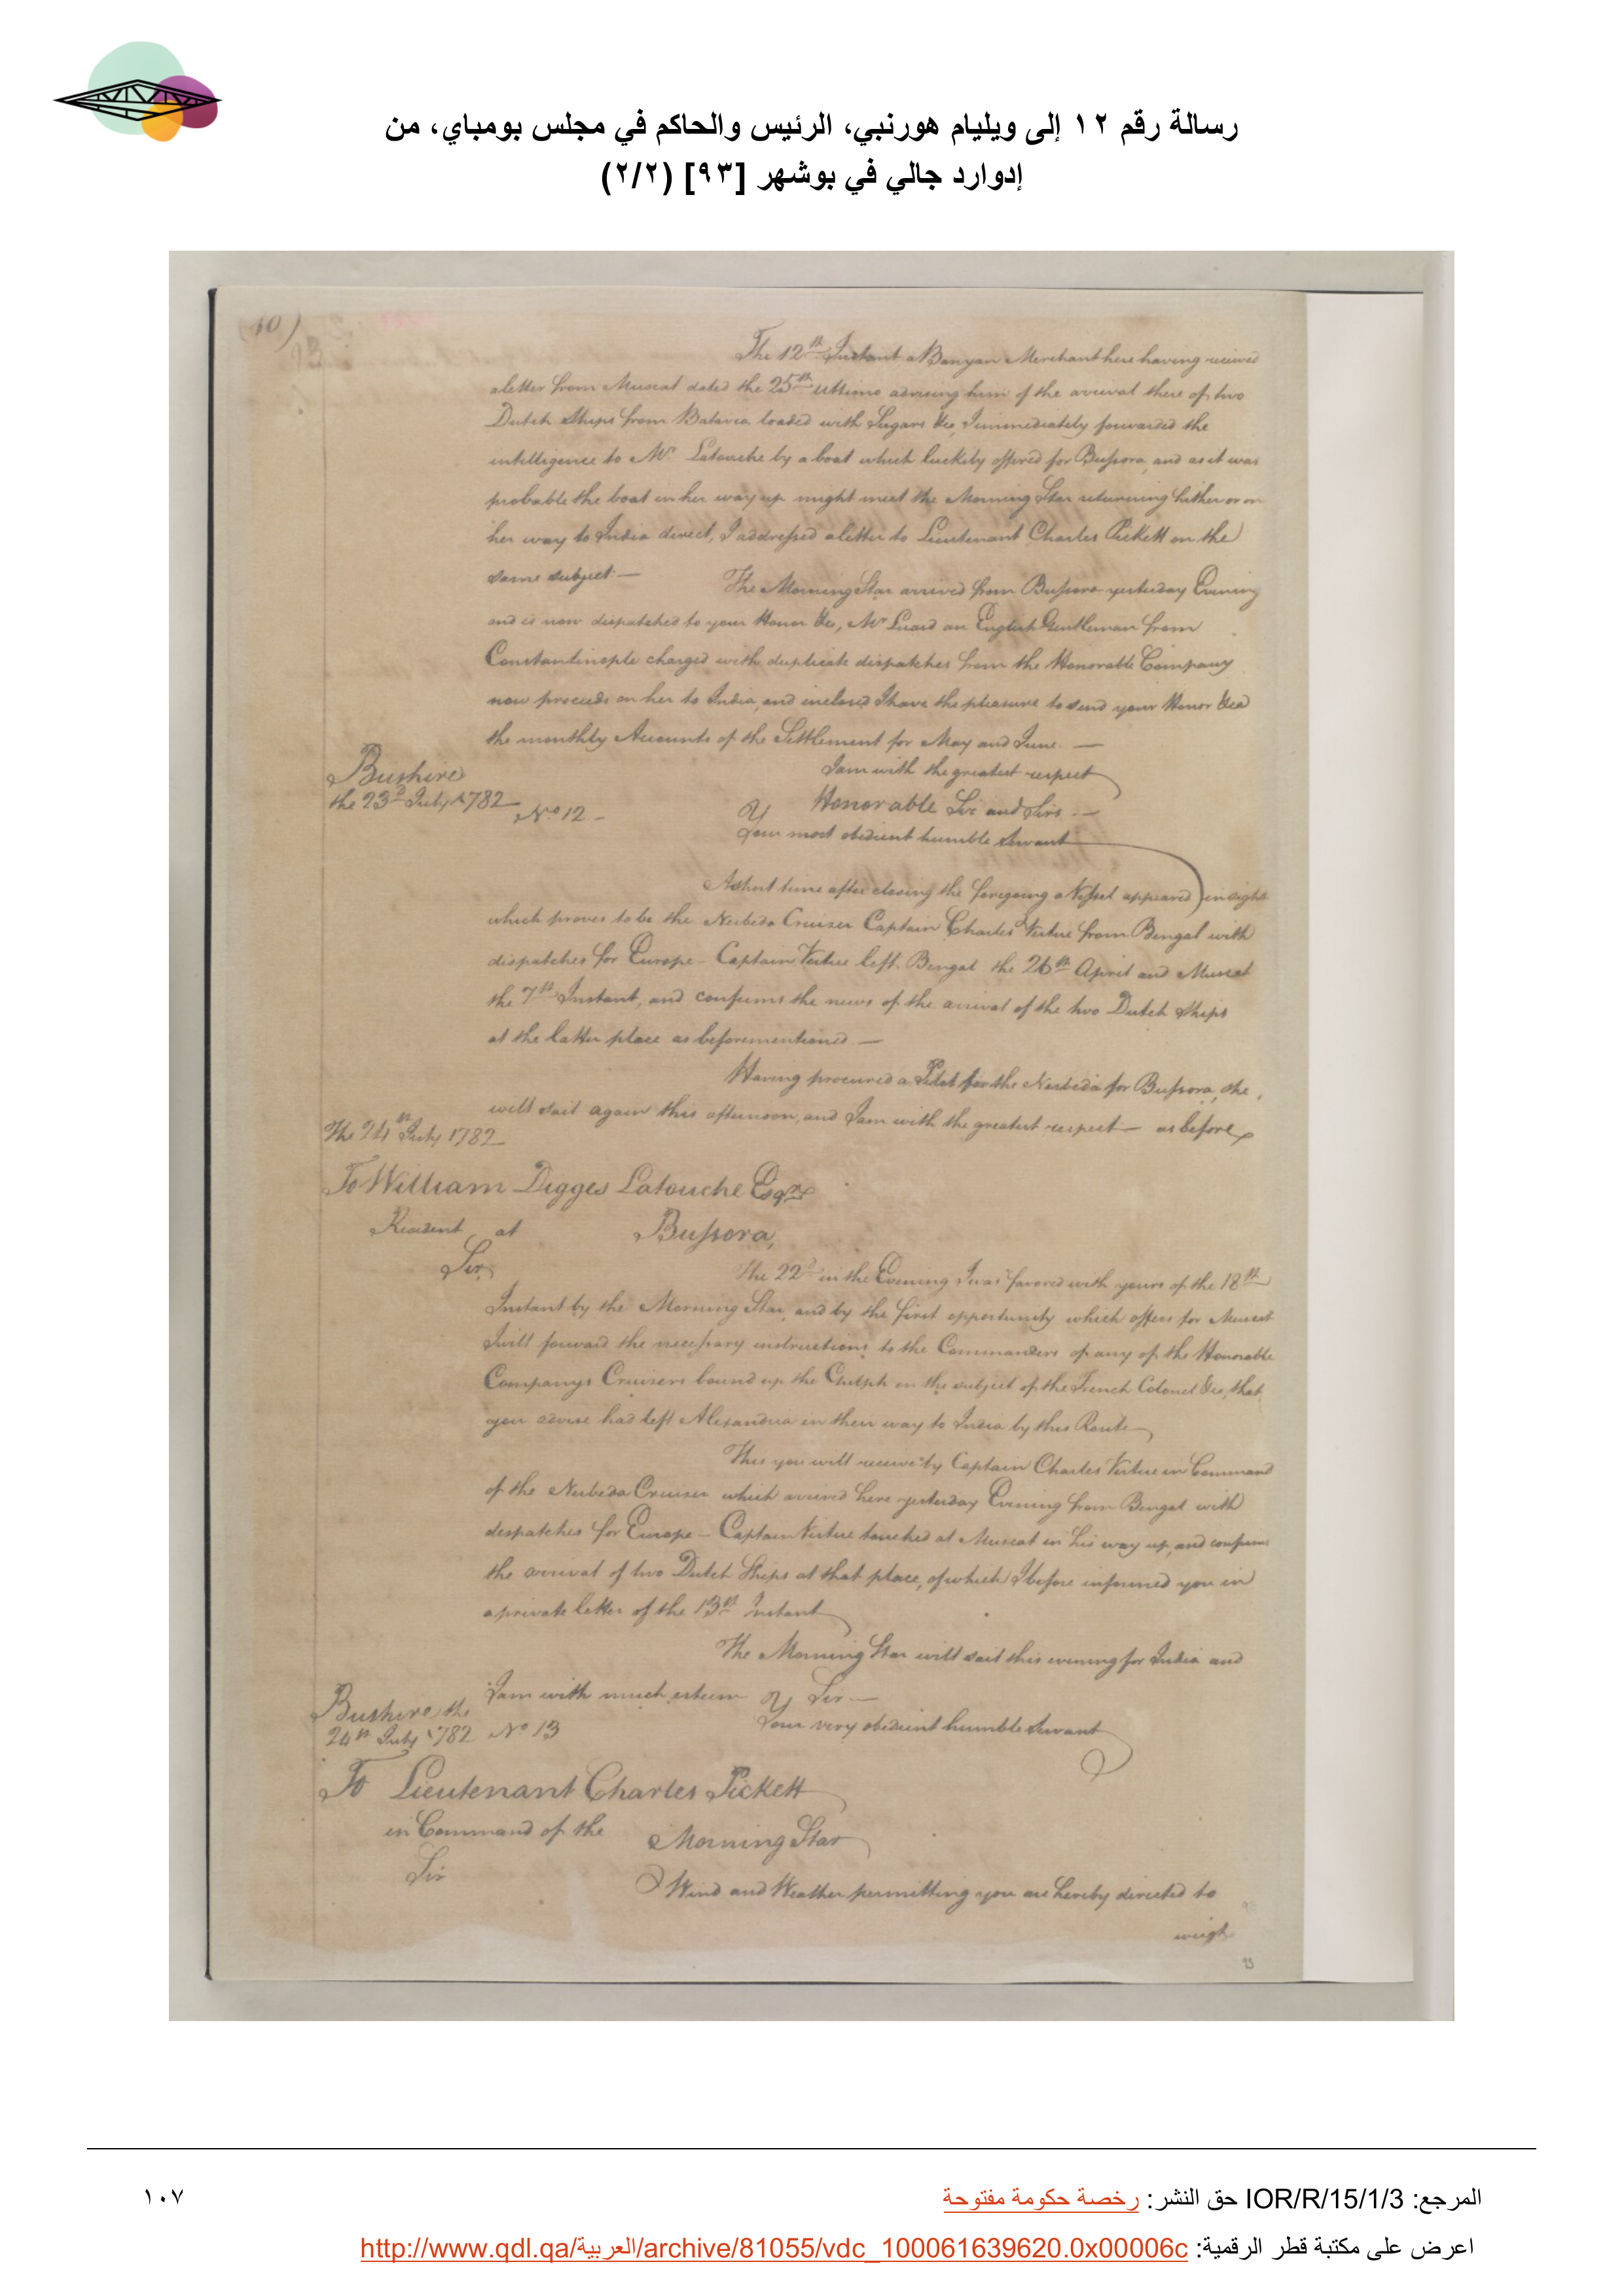 رسالة رقم ١٢ إلى ويليام هورنبي، الرئيس والحاكم في مجلس بومباي، من
إدوارد جالي في بوشهر [٩٣] (٢/٢)
(10)
The 12th Instant a Banyan Merchant here having recieved
a letter from Muscat dated the 25th Ultimo advising him of the arrival there of two
Dutch Ships from Batavia loaded with Sugars &ca, I immediately forwarded the
intelligence to Mr. Latouche by a boat which luckily offered for Bussora, and as it was
probable the boat in her way up might meet the Morning Star returning hither or on
her way to India direct, I addressed a letter to Lieutenant Charles Pickett on the
same subject. —
The Morning Star arrived from Bussora yesterday Evening
and is now dispatched to your Honor &ca, Mr Luard an English Gentleman from
Constantinople charged with duplicate dispatches from the Honorable Company
now proceeds on her to India, and inclosed I have the pleasure to send your Honor &ca
the monthly Accounts of the Settlement for May and June. —
I am with the greatest respect
Bushire
the 23d July 1782 No. 12 –
Honorable Sir and Sirs. —
Your most obedient humble Servant
A short time after closing the foregoing a Vessel appeared in sight
which proves to be the Nerbeda Cruiser Captain Charles Virtue from Bengal with
dispatches for Europe – Captain Virtue left Bengal the 26th April and Muscat
the 7th Instant, and confirms the news of the arrival of the two Dutch Ships
at the latter place as beforementioned —
Having procured a Pilot for the Nerbeda for Bussora, she
will sail again this afternoon, and I am with the greatest respect — as before
The 24th July 1782
To William Digges Latouche Esqre
Resident at Bussora,
Sir,
The 22d in the Evening I was favored with yours of the 18th
Instant by the Morning Star, and by the first opportunity which offers for Muscat
I will forward the necessary instructions to the Commanders of any of the Honorable
Companys Cruisers bound up the Gulph on the subject of the French Colonel &ca, that
you advise had left Alexandria in their way to India by this Route
This you will receive by Captain Charles Virtue in Command
of the Nerbeda Cruiser which arrived here yesterday Evening from Bengal with
despatches for Europe – Captain Virtue touched at Muscat in his way up, and confirms
the arrival of two Dutch Ships at that place, of which I before informed you in
a private letter of the 13th Instant
The Morning Star will sail this evening for India and
I am with much esteem Sir —
Bushire the
24th July 1782 No. 13
Your very obedient humble Servant
To Lieutenant Charles Pickett
in Command of the Morning Star
Sir
Wind and Weather permitting you are hereby directed to
weigh
93
المرجع: IOR/R/15/1/3 حق النشر: رخصة حكومة مفتوحة
١٠٧
اعرض على مكتبة قطر الرقمية: http://www.qdl.qa/العربية/archive/81055/vdc_100061639620.0x00006c